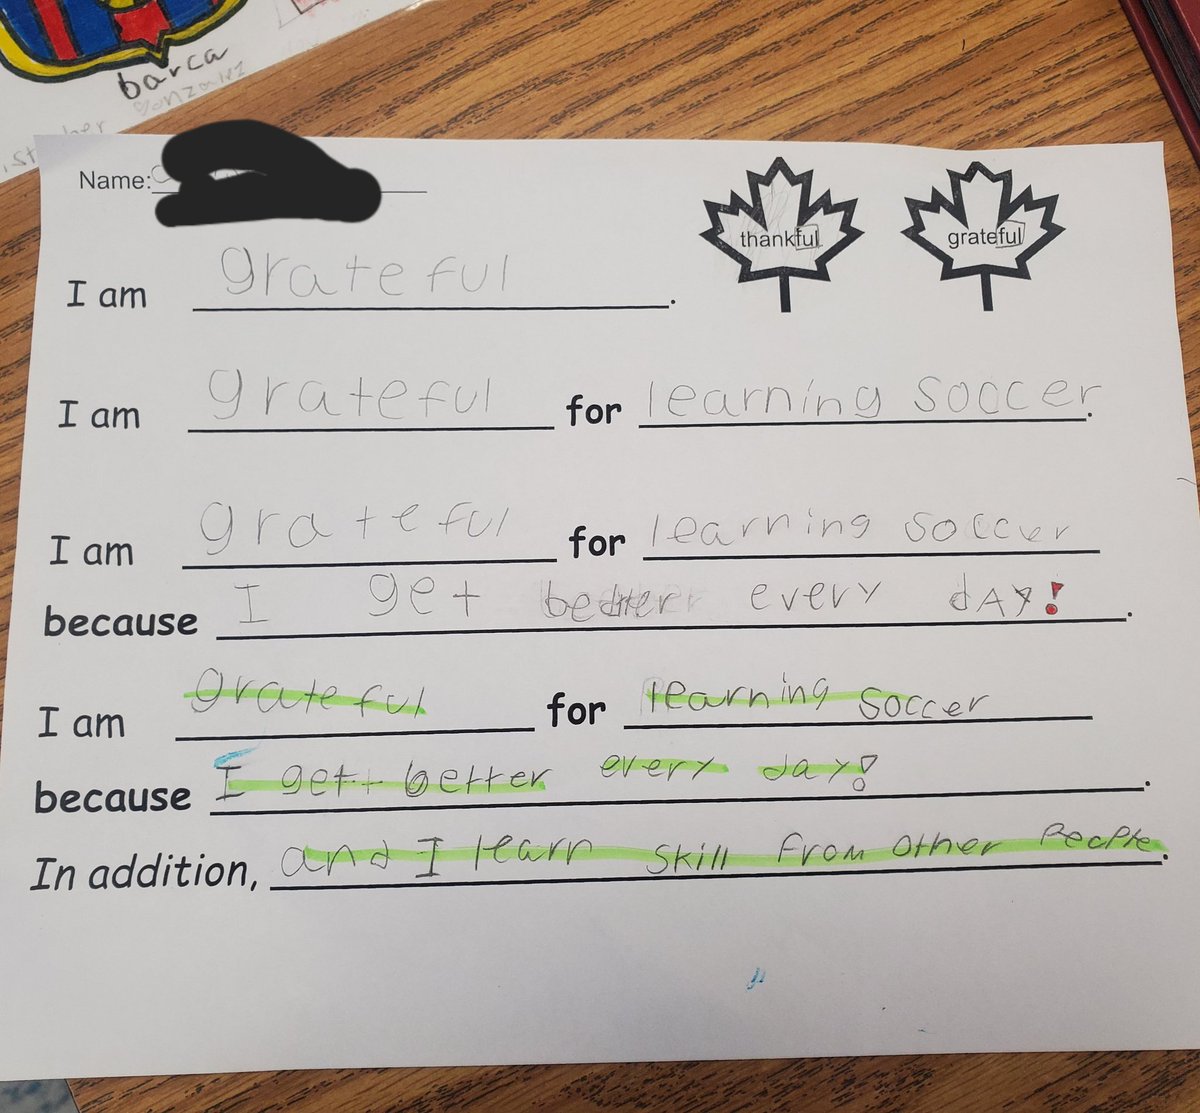 barca
gonzalez
Name:
thankful
grateful
I am grateful.
I am grateful for learning soccer.
I am grateful for learning soccer
because I get better every dAy!.
I am grateful for learning soccer
because I get better every day!.
In addition, and I learn skill from other people.